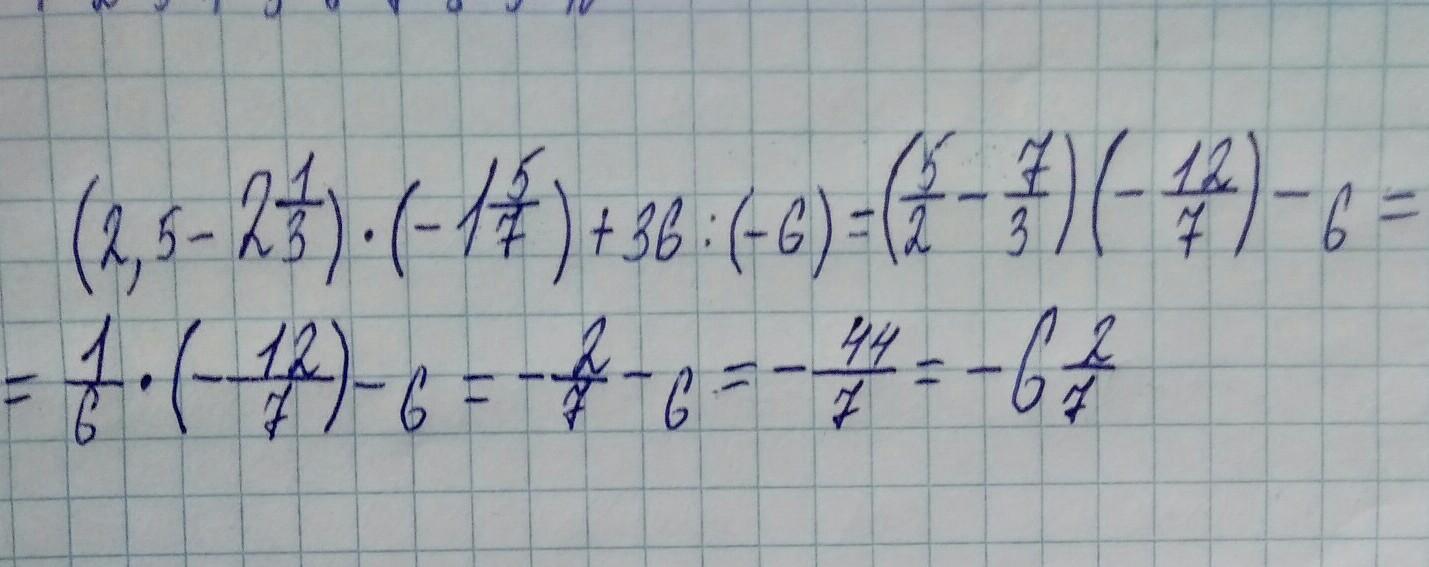 (2,5-2 1/3)·(-1 5/7)+36:(-6)=(5/2-7/3)(-12/7)-6=
=1/6·(-12/7)-6=-2/7-6=-44/7=-6 2/7